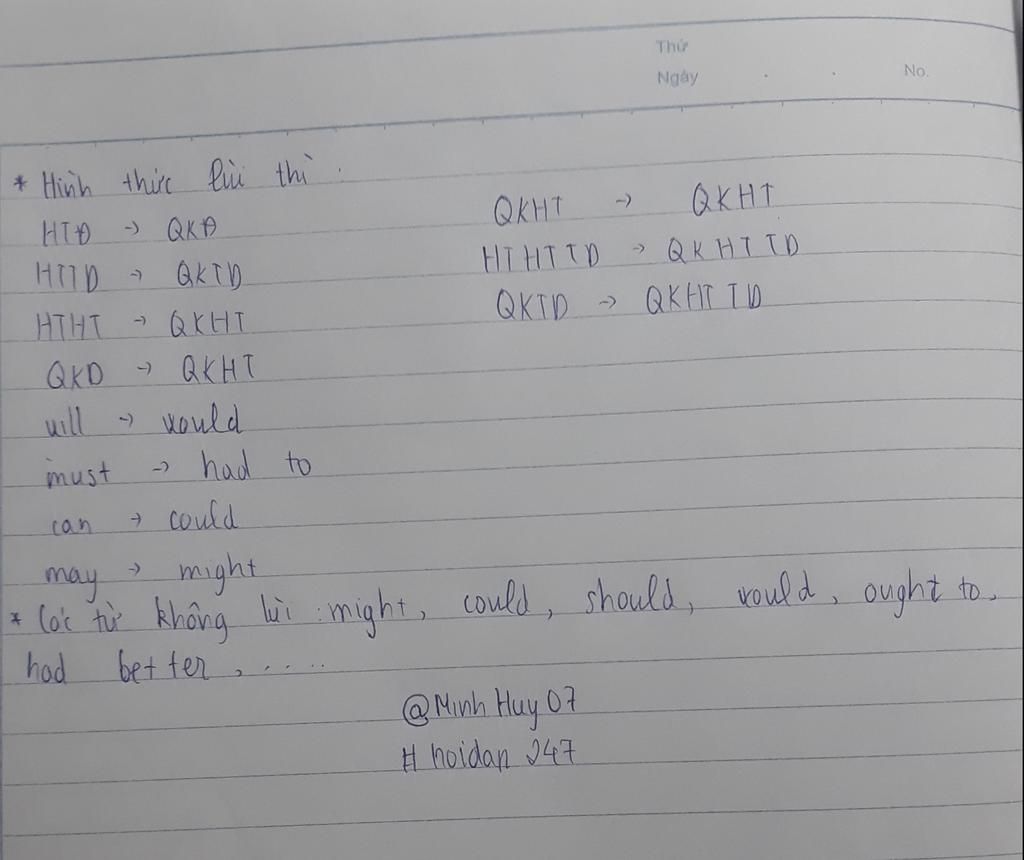 Thứ
Ngày . . No.
* Hình thức lùi thì :
HTĐ -> QKĐ
HTTD -> QKTD
HTHT -> QKHT
QKD -> QKHT
will -> would
must -> had to
can -> could
may -> might
QKHT -> QKHT
HTHTTD -> QKHTTD
QKTD -> QKHTTD
* Các từ không lùi : might, could, should, would, ought to,
had better, .....
@MinhHuy07
#hoidap247